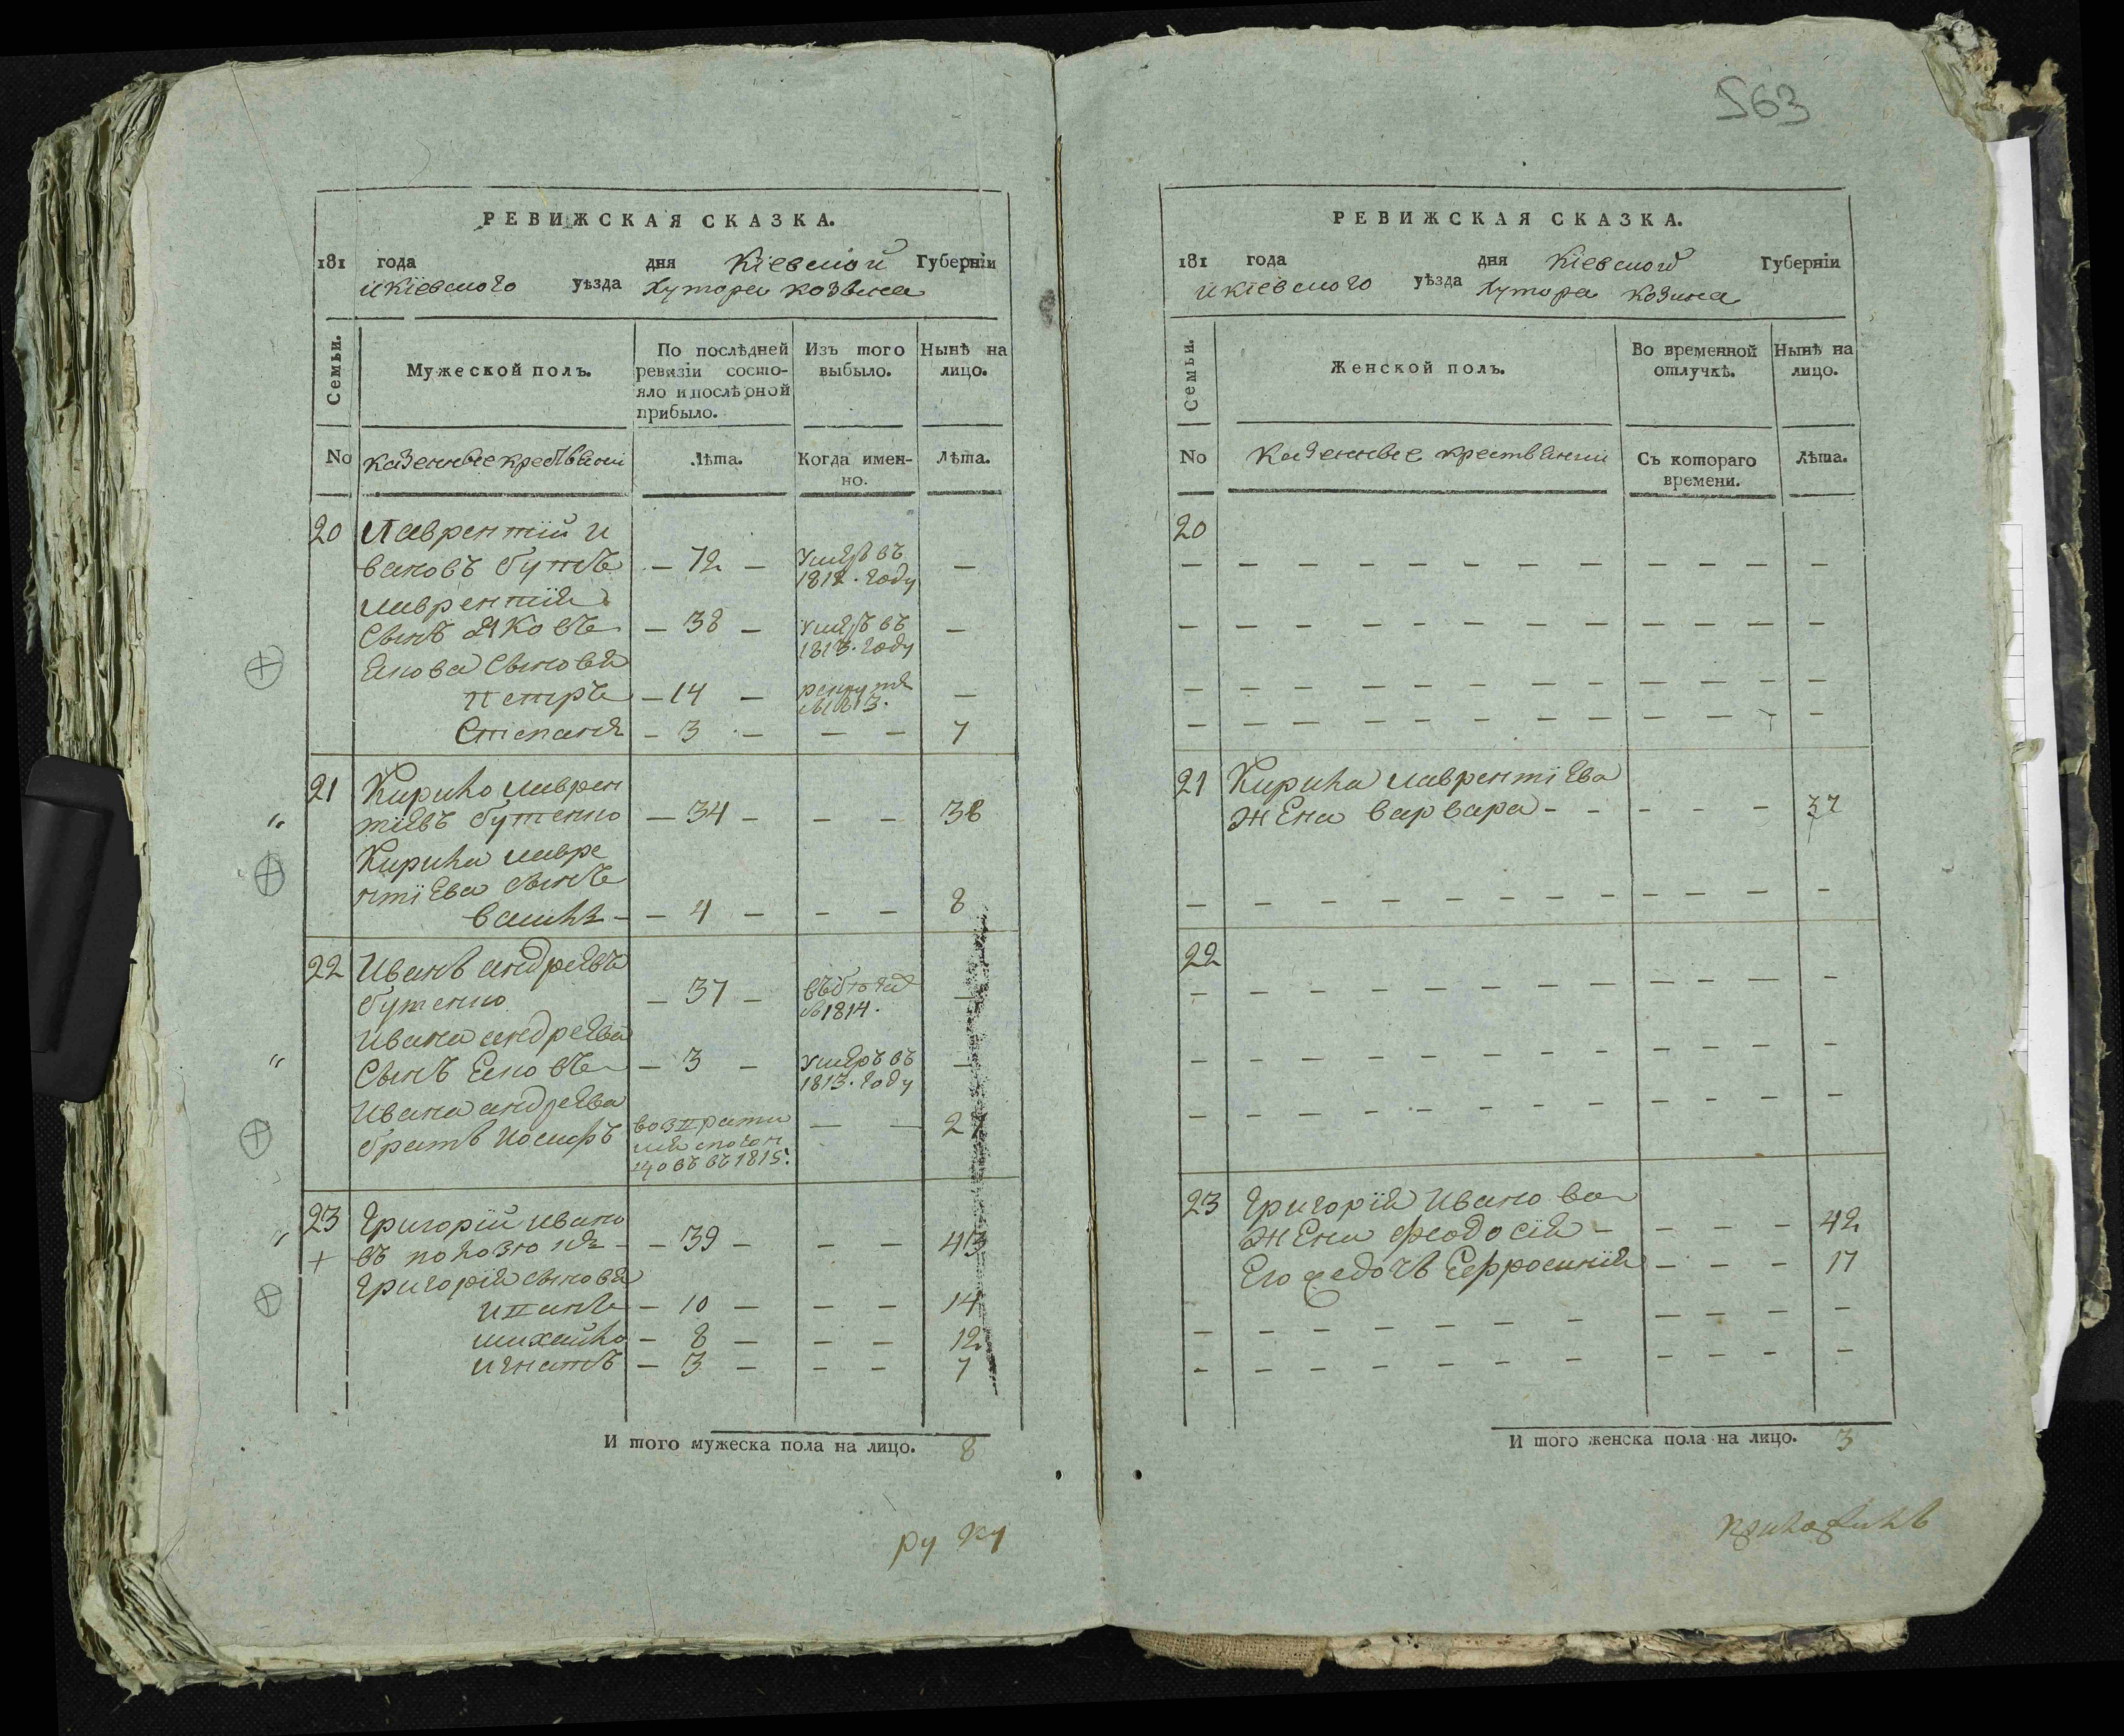 563
РЕВИЖСКАЯ СКАЗКА.
181 года дня Кіевской Губерніи
Кіевского уѣзда Хутора Козина
Семьи. Мужеской полъ. По послѣдней ревизіи состо-яло и послѣ оной прибыло. Изъ того выбыло. Нынѣ на лицо.
No казенные крестьяни Лѣта. Когда имен-но. Лѣта.
20 Лаврентий и
вановъ бут — 72 — умеръ въ 1812. году —
лаврентия
Сынъ яковъ — 38 — умеръ въ 1813. году —
Якова Сыновя
петръ — 14 — 1813. —
Степанъ — 3 — — — 7
21 Кирило лаврен
тиевъ бутенко — 34 — — — 38
Кирила лавре
нтіева Сынъ
— 4 — — — 8
22 Иванъ андреевъ
бутенко — 37 — 1814. —
Ивана андреева
Сынъ — 3 — умеръ въ 1813. году —
Ивана андреева
братъ иосифъ въ 1815. — —
23 Григорий ивано
въ — 39 — — — 43
Григория сыновя
иванъ — 10 — — — 14
михайло — 8 — — — 12
игнатъ — 3 — — — 7
И того мужеска пола на лицо. 8
руку
РЕВИЖСКАЯ СКАЗКА.
181 года дня Кіевской Губерніи
Кіевского уѣзда Хутора Козина
Семьи. Женской полъ. Во временной отлучкѣ. Нынѣ на лицо.
No Казенные крестьянки Съ котораго времени. Лѣта.
20
21 Кирила лаврентіева
жена варвара — — — — — 37
22
23 Григорія Иванова
жена феодосія — — — — 42
Его дочь Еефросинія — — — 17
И того женска пола на лицо. 3
приложилъ